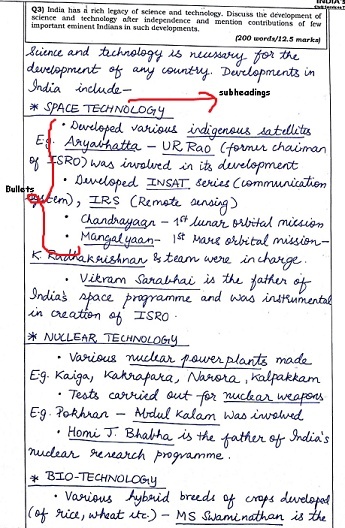 INDIA'S
Q3) India has a rich legacy of science and technology. Discuss the development of
science and technology after independence and mention contributions of few
important eminent Indians in such developments.
(200 words/12.5 marks)
Science and technology is necessary for the
development of any country. Developments in
India include-
subheadings
* SPACE TECHNOLOGY
• Developed various indigenous satellites
Eg. Aryabhatta - U.R. Rao (former chaiman
of ISRO) was involved in its development
Bullets
• Developed INSAT series (communication
system), IRS (Remote sensing)
• Chandrayaan - 1st lunar orbital mission
• Mangalyaan - 1st Mars orbital mission-
K. Radhakrishnan & team were in charge.
• Vikram Sarabhai is the father of
India's space programme and was instrumental
in creation of ISRO.
* NUCLEAR TECHNOLOGY
• Various nuclear power plants made
Eg. Kaiga, Kakrapara, Narora, Kalpakkam
• Tests carried out for nuclear weapons
Eg. Pokhran - Abdul Kalam was involved
• Homi J. Bhabha is the father of India's
nuclear research programme.
* BIO-TECHNOLOGY
• Various hybrid breeds of crops developed
(of rice, wheat etc.) - MS Swaminathan is the